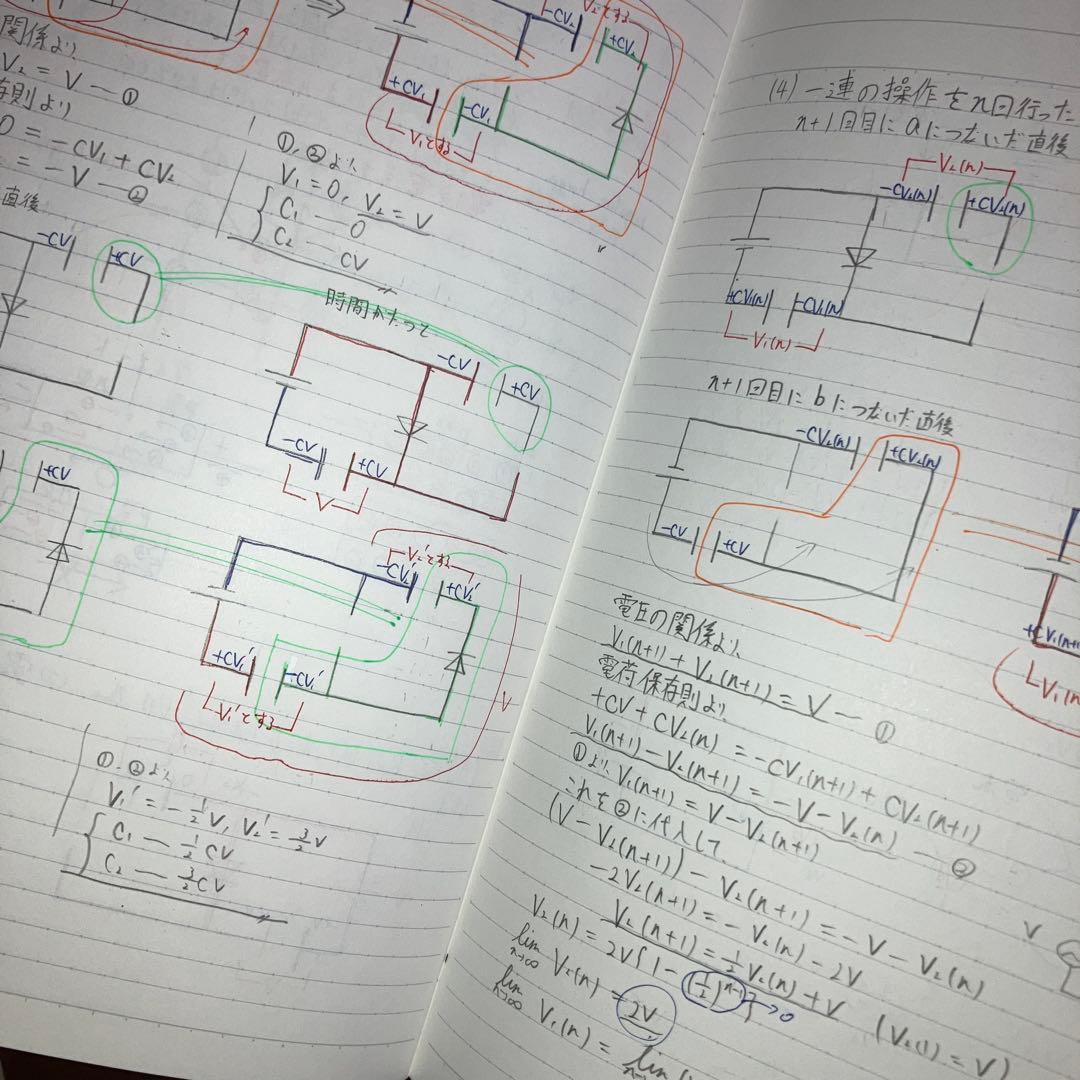 関係より
V₂ = V ― ①
存則より
0 = -CV₁ + CV₂
= -V ― ②
直後
⇒
-CV₂
V₂とする
+CV₂
+CV₁
-CV₁
V₁とする
①, ②より
V₁ = 0, V₂ = V
C₁ ― 0
C₂ ― CV
-CV
+CV
時間がたって
-CV
+CV
-CV
+CV
V
+CV
V₂'とする
-CV₂'
+CV₂'
+CV₁'
-CV₁'
V₁'とする
V
①, ②より
V₁' = -1/2 V, V₂' = 3/2 V
C₁ ― 1/2 CV
C₂ ― 3/2 CV
(4) 一連の操作をn回行った
n+1回目にaにつないだ直後
V₂(n)
-CV₂(n)
+CV₂(n)
+CV₁(n)
-CV₁(n)
V₁(n)
n+1回目にbにつないだ直後
-CV₂(n)
+CV₂(n)
-CV
+CV
+CV₁(n+1)
V₁(n
電圧の関係より
V₁(n+1) + V₂(n+1) = V ― ①
電荷保存則より
+CV + CV₂(n) = -CV₁(n+1) + CV₂(n+1)
V₁(n+1) - V₂(n+1) = -V - V₂(n) ― ②
①より V₁(n+1) = V - V₂(n+1)
これを②に代入して、
(V - V₂(n+1)) - V₂(n+1) = -V - V₂(n)
-2V₂(n+1) = -V₂(n) - 2V
V₂(n+1) = 1/2 V₂(n) + V (V₂(1) = V)
V₂(n) = 2V{1 - (1/2)ⁿ} → 0
lim n→∞ V₂(n) = 2V
lim n→∞ V₁(n) = lim
V